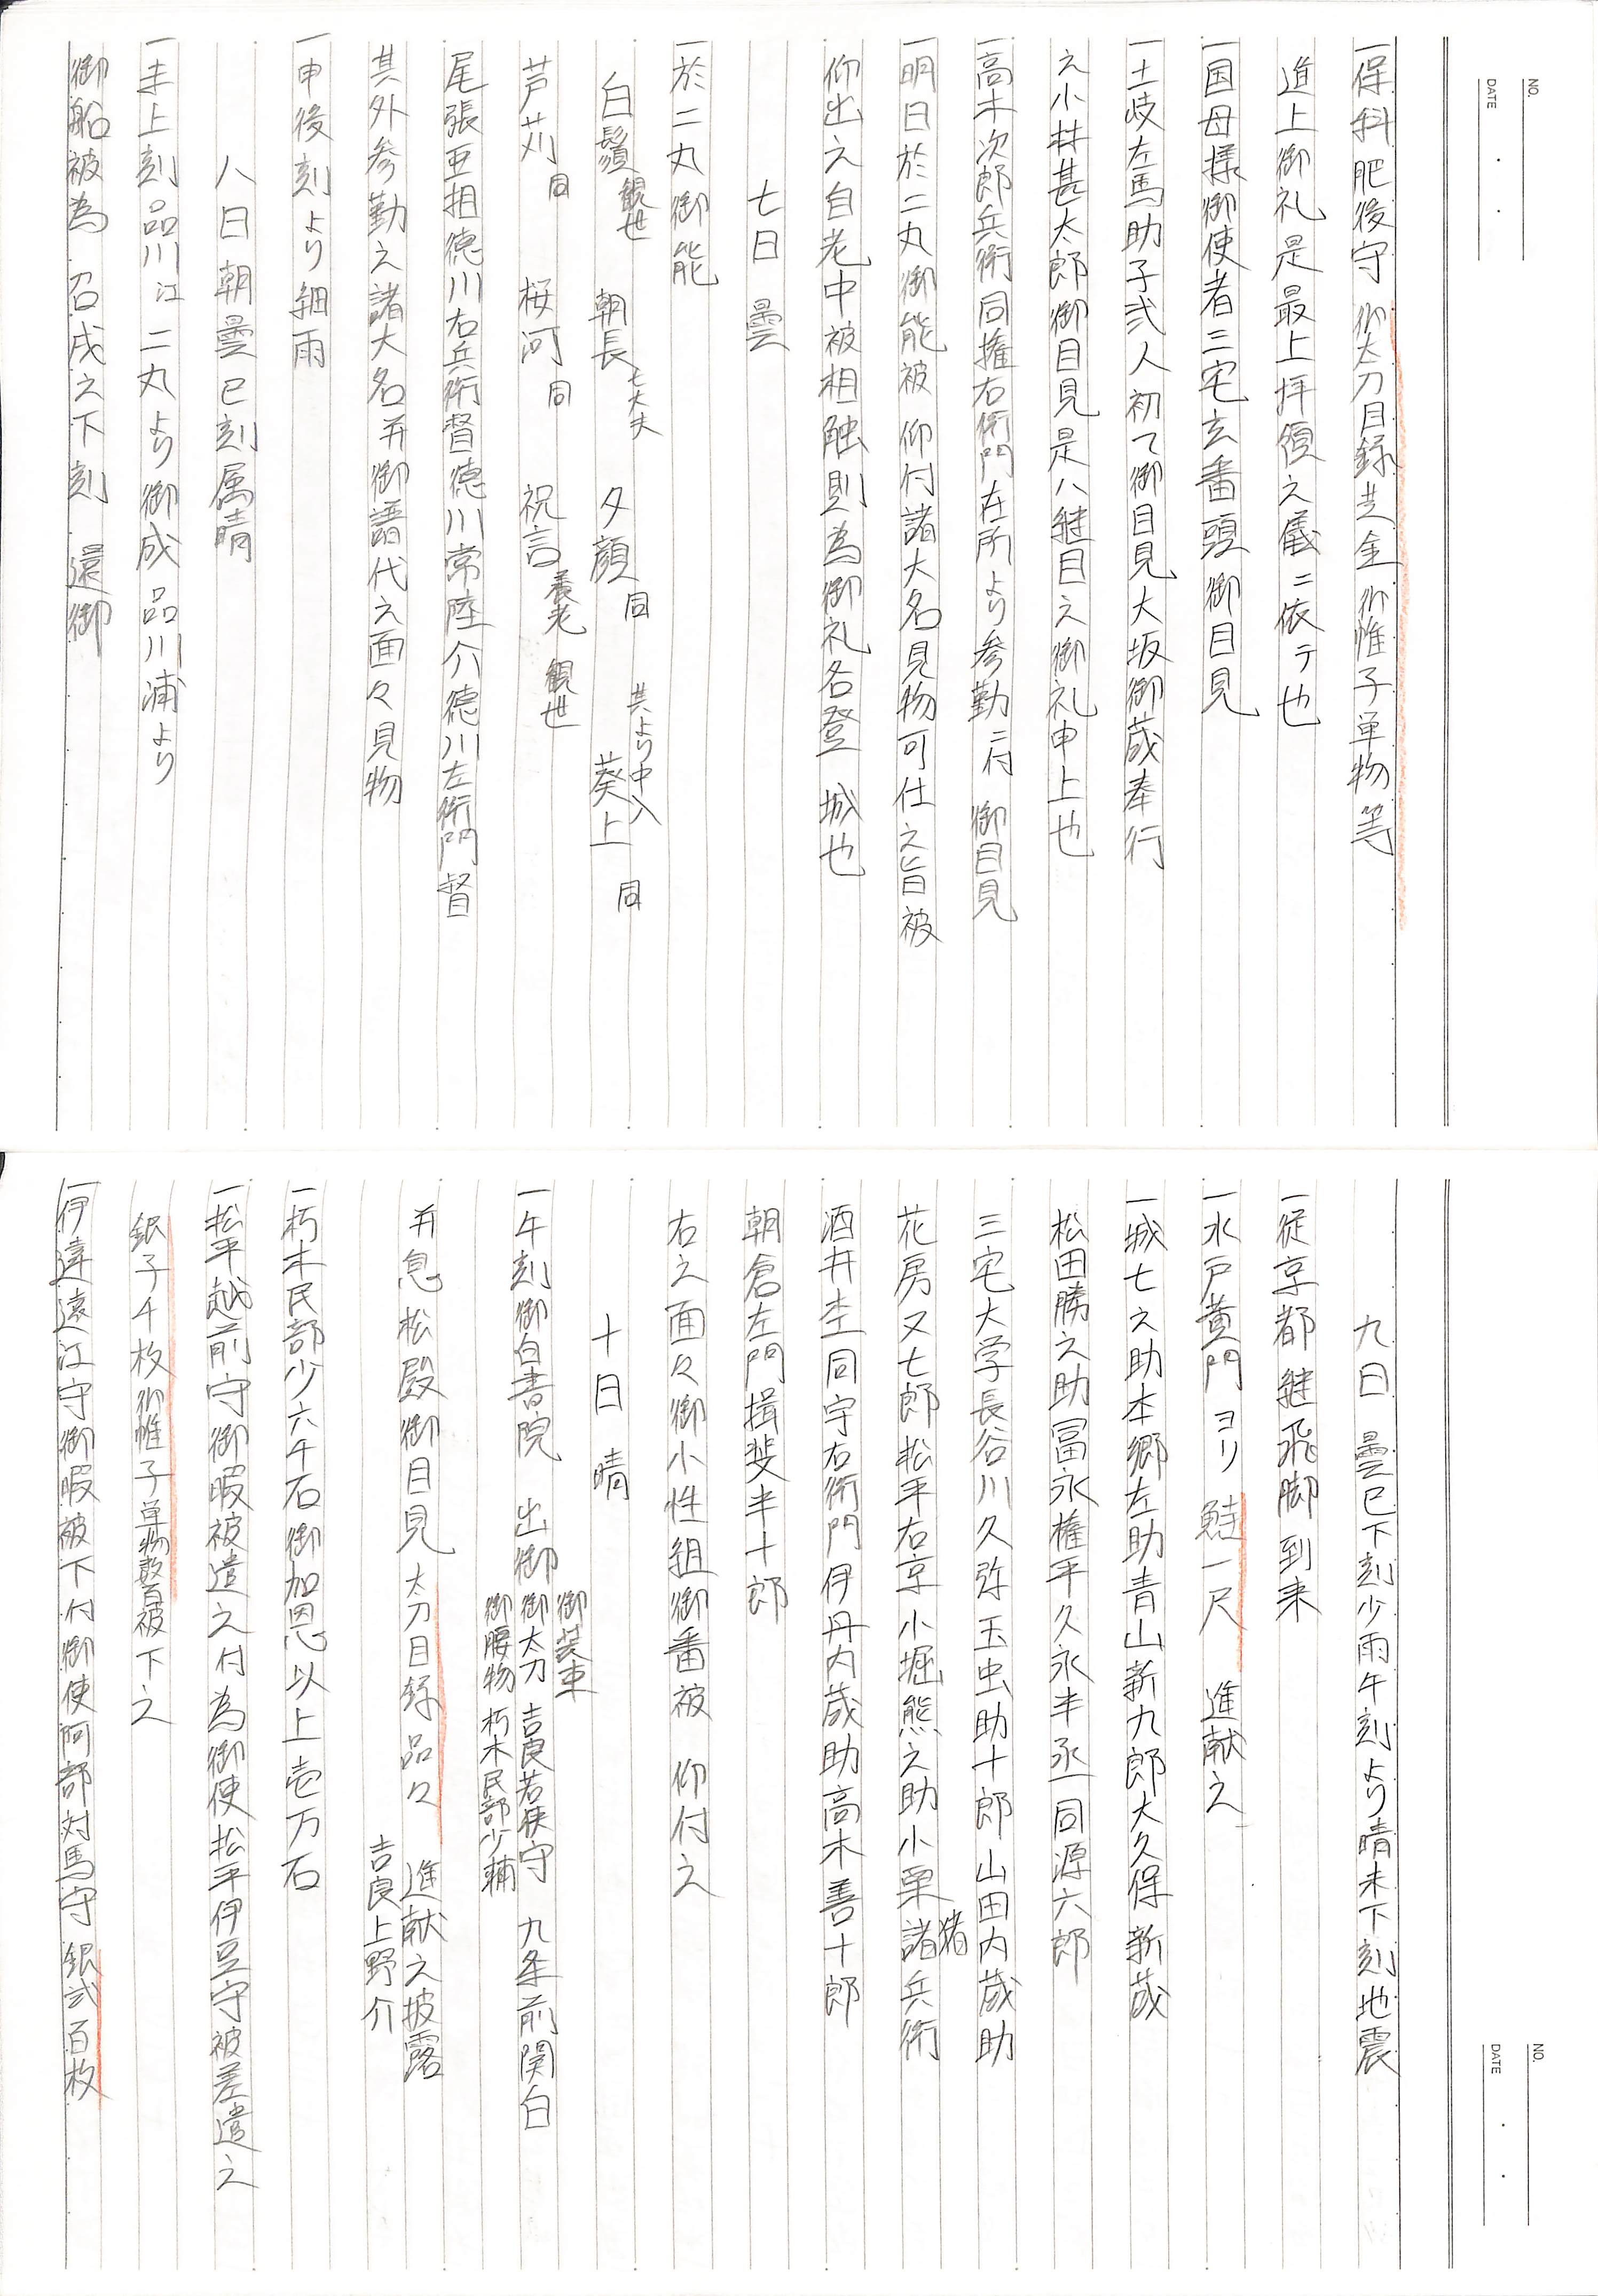 NO.
DATE ・ ・
一保科肥後守 御太刀目録共金御惟子単物等
進上御礼是最上拝領之儀ニ依テ也
一国母様御使者三宅玄番頭御目見
一土岐左馬助子弐人初て御目見大坂御蔵奉行
之小林甚太郎御目見是ハ継目之御礼申上也
一高木次郎兵衛同権右衛門在所より参勤ニ付 御目見
一明日於二丸御能被 仰付諸大名見物可仕之旨被
仰出之自老中被相触則為御礼各登 城也
七日 曇
一於二丸御能
白鬚 観世 朝長 七大夫 夕顔 同 共より中入 葵上 同
芦苅 同 桜河 同 祝言 養老 観世
尾張亜相徳川右兵衛督徳川常陸介徳川左衛門督
其外参勤之諸大名并御譜代之面々見物
一申後刻より細雨
八日 朝曇巳刻属晴
一未上刻品川江二丸より御成品川浦より
御船被為 召戌之下刻 還御
NO.
DATE ・ ・
九日 曇巳下刻少雨午刻より晴未下刻地震
一従京都継飛脚到来
一水戸黄門ヨリ 鮭一尺 進献之
一城七之助本郷左助青山新九郎大久保新蔵
松田勝之助冨永権平久永半丞同源六郎
三宅大学長谷川久弥玉虫助十郎山田内蔵助
花房又七郎松平右京小堀熊之助小栗諸兵衛
猪
酒井杢同宇右衛門伊丹内蔵助高木善十郎
朝倉左門揖斐半十郎
右之面々御小性組御番被 仰付之
十日 晴
一午刻御白書院 出御 御装束 御太刀 吉良若狭守 御腰物 朽木民部少輔 九条前関白
并息松殿御目見 太刀目録品々 進献之披露 吉良上野介
一朽木民部少六千石御加恩以上壱万石
一松平越前守御暇被遣之付為御使松平伊豆守被差遣之
銀子千枚御惟子単物数百被下之
一伊達遠江守御暇被下付御使阿部対馬守 銀弐百枚